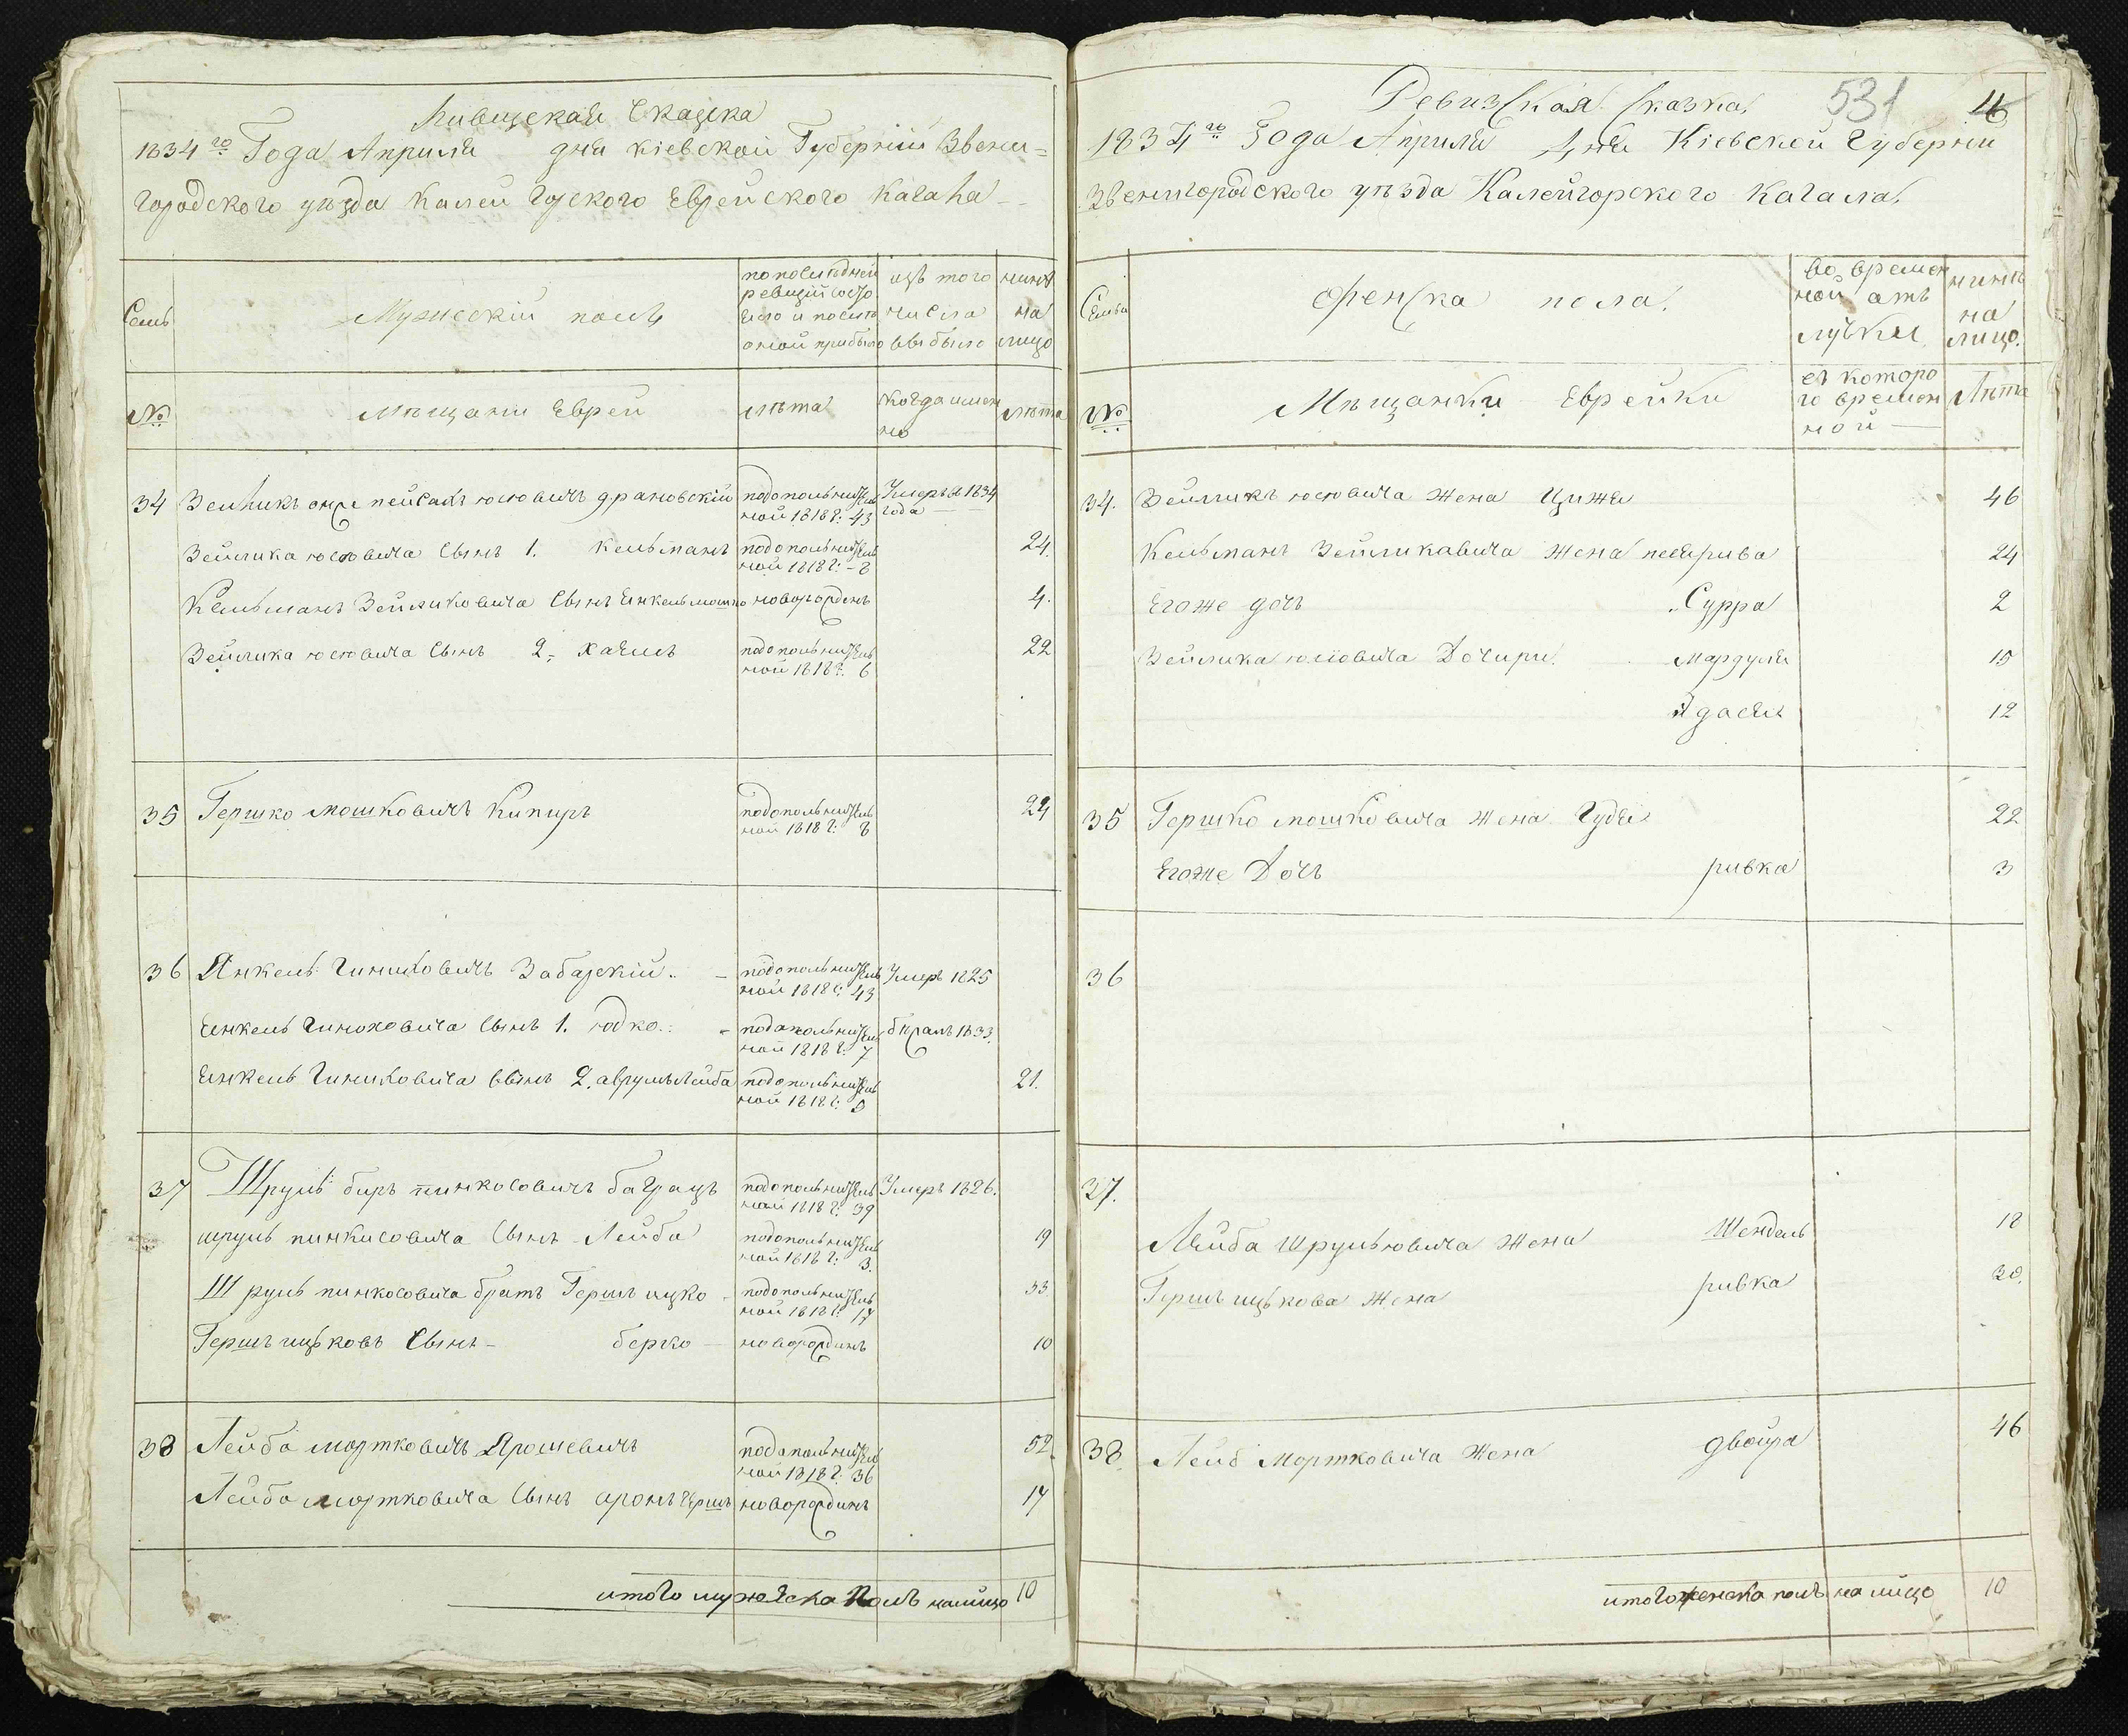 Ривизская Сказка
1834го Года Априля дня Кіевской Губерніи Звени=
городского уѣзда Калей Горского Еврейского Кагала
Семь
Мужескій полъ
по последней
ревизіи состо
яло и после
оной прибыло
изъ того
числа
выбыло
нинѣ
на
лицо
№
Мѣщани Евреи
лѣта
Когда имен
но
лѣта
34 Зейликъ онже пейсахъ юсювичъ драновскій подополнител
ной 1818 г: 43 Умеръ в 1834
года
Зейлика юсювича Сынъ 1. Кельманъ подополнител
ной 1818 г: 8 24.
Кельманъ Зейликовича Сынъ Енкель мошко новорожденъ 4.
Зейлика юсювича Сынъ 2. хаемъ подополнител
ной 1818 г. 6 22
35 Гершко мошковичъ Кипиръ подополнител
ной 1818 г: 8 24
36 Янкель Гиниховичъ Забарскій подополнител
ной 1818 г: 43 Умеръ 1825
Енкель Гиноховича Сынъ 1. юдко подополнител
ной 1818 г. 7 бкрать 1833.
Енкель Гиниховича Сынъ 2. аврумъ Лейба подополнител
ной 1818 г: 21.
37 Шруль беръ пинкосовичъ подополнител
ной 1818 г: 39 Умеръ 1826.
шруль пинкисовича Сынъ Лейба подополнител
ной 1818 г: 3. 19
Шруль пинкосовича братъ Гершъ ицко подополнител
ной 1818 г: 17 33
Гершъ ицьковъ Сынъ - берко новорожденъ 10
38 Лейба мортковичъ Ярошевичъ подополнител
ной 1818 г: 36 52
Лейба мортковича Сынъ аронъ гершъ новорожденъ 17
итого мужеска полъ налицо 10
Ревизская Сказка
531
1834го Года Априля Дня Кіевской Губерніи
Звенигородского уѣзда Калейгорского Кагала
Семьи
Женска пола.
во времен
ной отъ
лучки
нинѣ
на
лицо.
№
Мѣщанки Еврейки
съ которо
го времен
ной
Лѣта
34. Зейликъ юсювича жена Цижя 46
Кельманъ Зейликавича жена песярива 24
Егоже дочъ Сурра 2
Зейлика юсіовича Дочири Мардуля 15
Адасея 12
35 Гершко мошковича жена Гудя 22
Егоже Дочъ ривка 3
36
37.
Лейба Шрульювича жена Шендель 18
Гершъ ицькова жена ривка 30.
38. Лейб Мортковича жена двойра 46
итого женска полъ на лицо 10